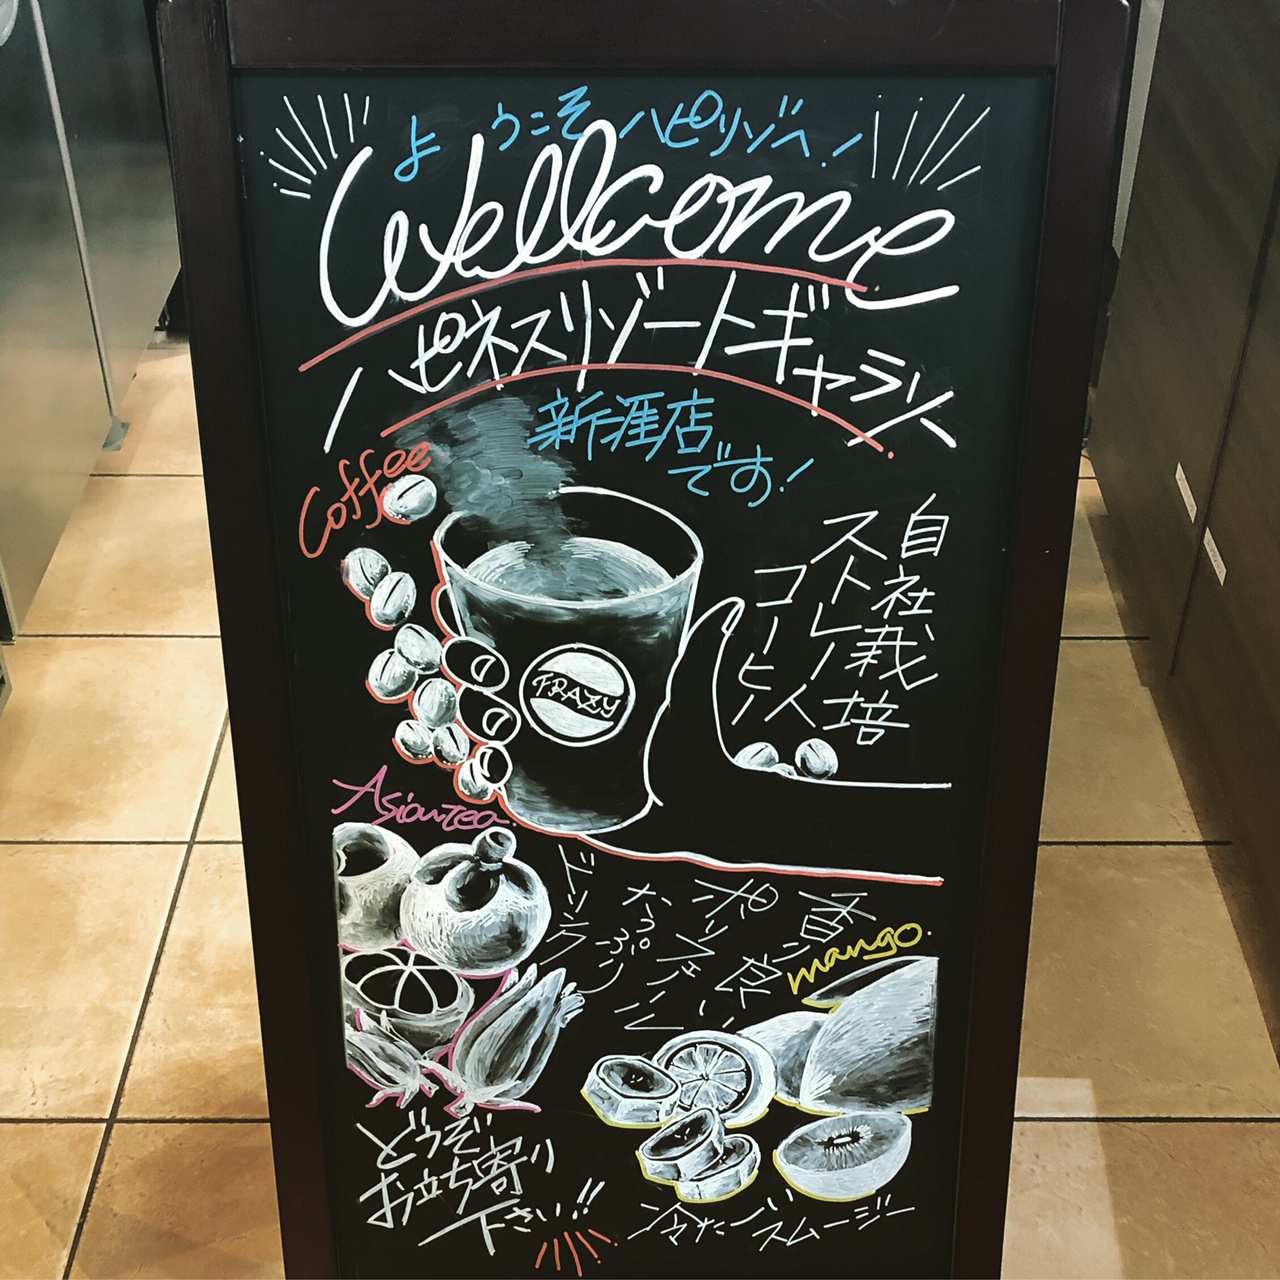 ようこそハピリゾへ!
Wellcome
ハピネスリゾートギャラリー
新涯店
です!
Coffee
自社栽培
ストレート
コーヒー
FRAZY
Asian tea
香り
ポリフェノール
たっぷり
mango
どうぞ
お立ち寄り
下さい!!
スムージー